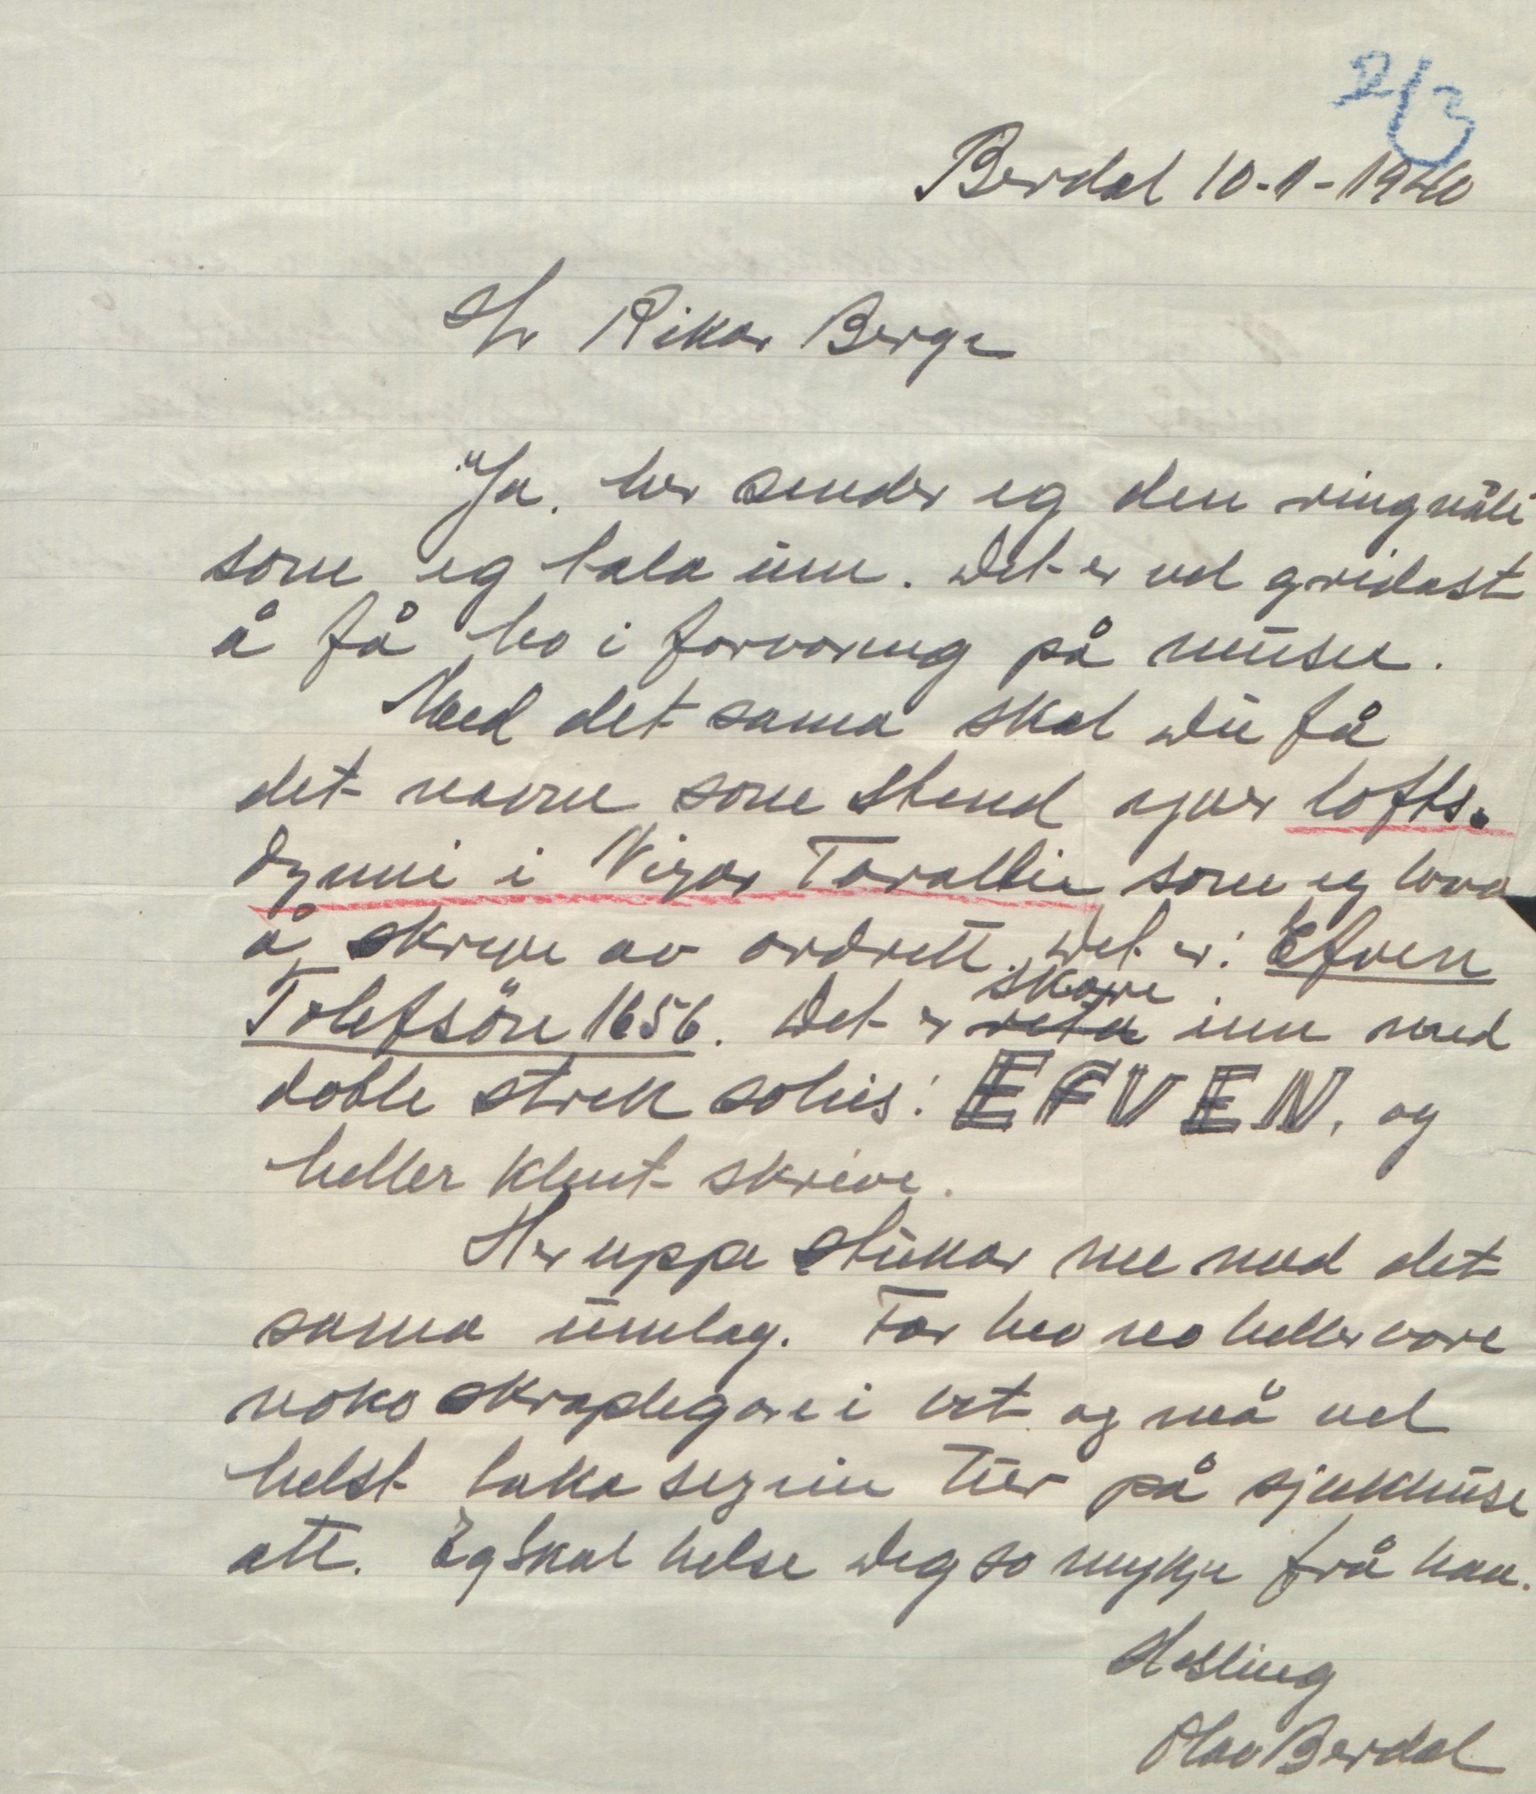 2/3
Berdal 10-1-1940
Hr Rikar Berge
Ja, her sender eg den ringnåli
som eg tala um. Det er vel gridast
å få ho i forvaring på musee.
Med det sama skal du få
det navne som stend yver lofts-
dynni i Nigar Tarallii som eg lova
å skrive av ordrett. Det er: Efven
Tolefsön 1656. Det er skore inn med
doble strek soleis: EFVEN, og
heller klent skrive.
Her uppe stukar me med det
sama umlag. Far heve no heller vore
noko skraplegare i vet og må vel
helst taka seg ein tur på sjukhuse
att. Eg skal helse deg so mykje frå han.
Helsing
Olav Berdal